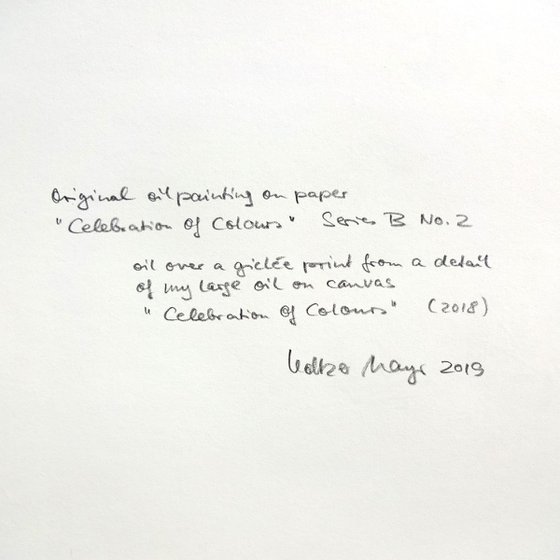 Original oil painting on paper
"Celebration of Colours" Series B No. 2
oil over a giclée print from a detail
of my large oil on canvas
"Celebration of Colours" (2018)
Volker Mayr 2019